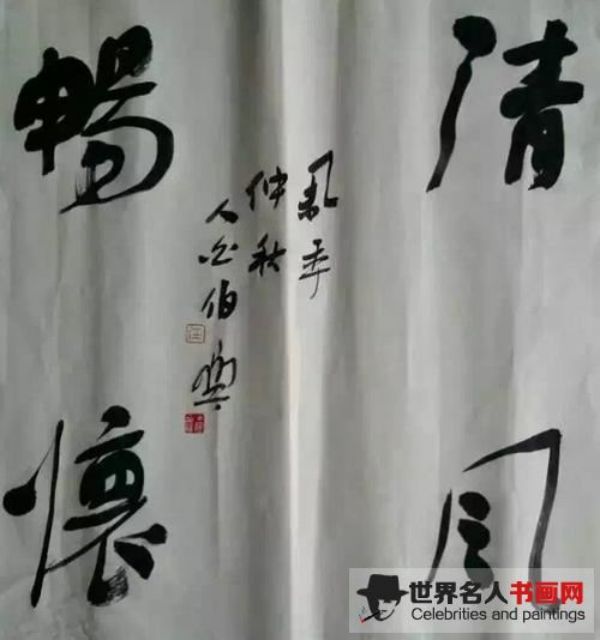 清风
暢懷
年
仲秋
人伯
世界名人书画网
Celebrities and paintings